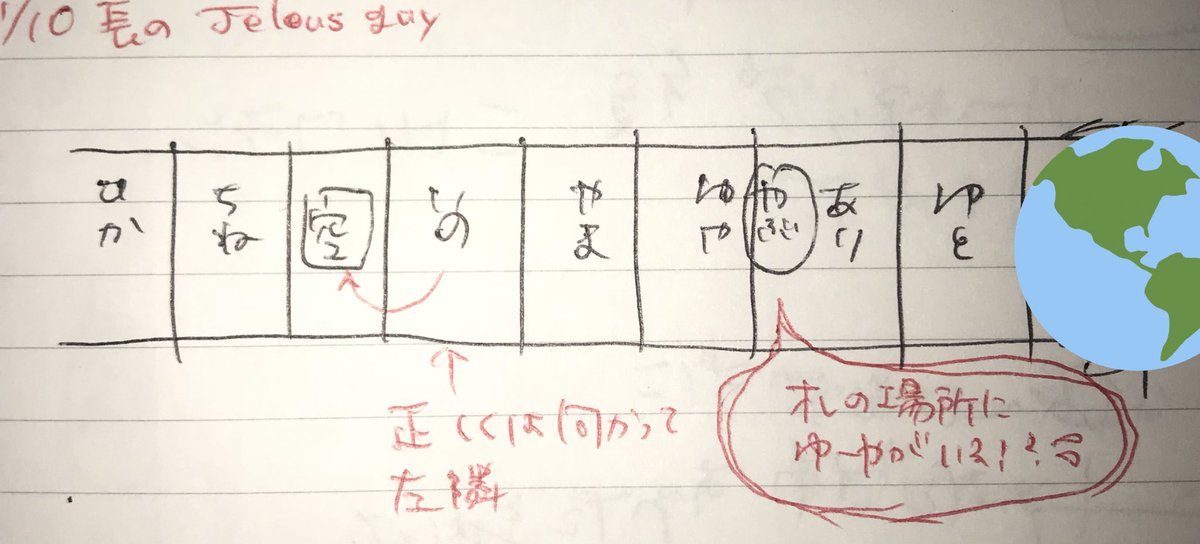 1/10 夢の Jelous guy
ひか ちね 空 しの やま ゆや やぶ あり ゆを
正しくは向かって
左隣
札の場所に
ゆーやがいる!?る